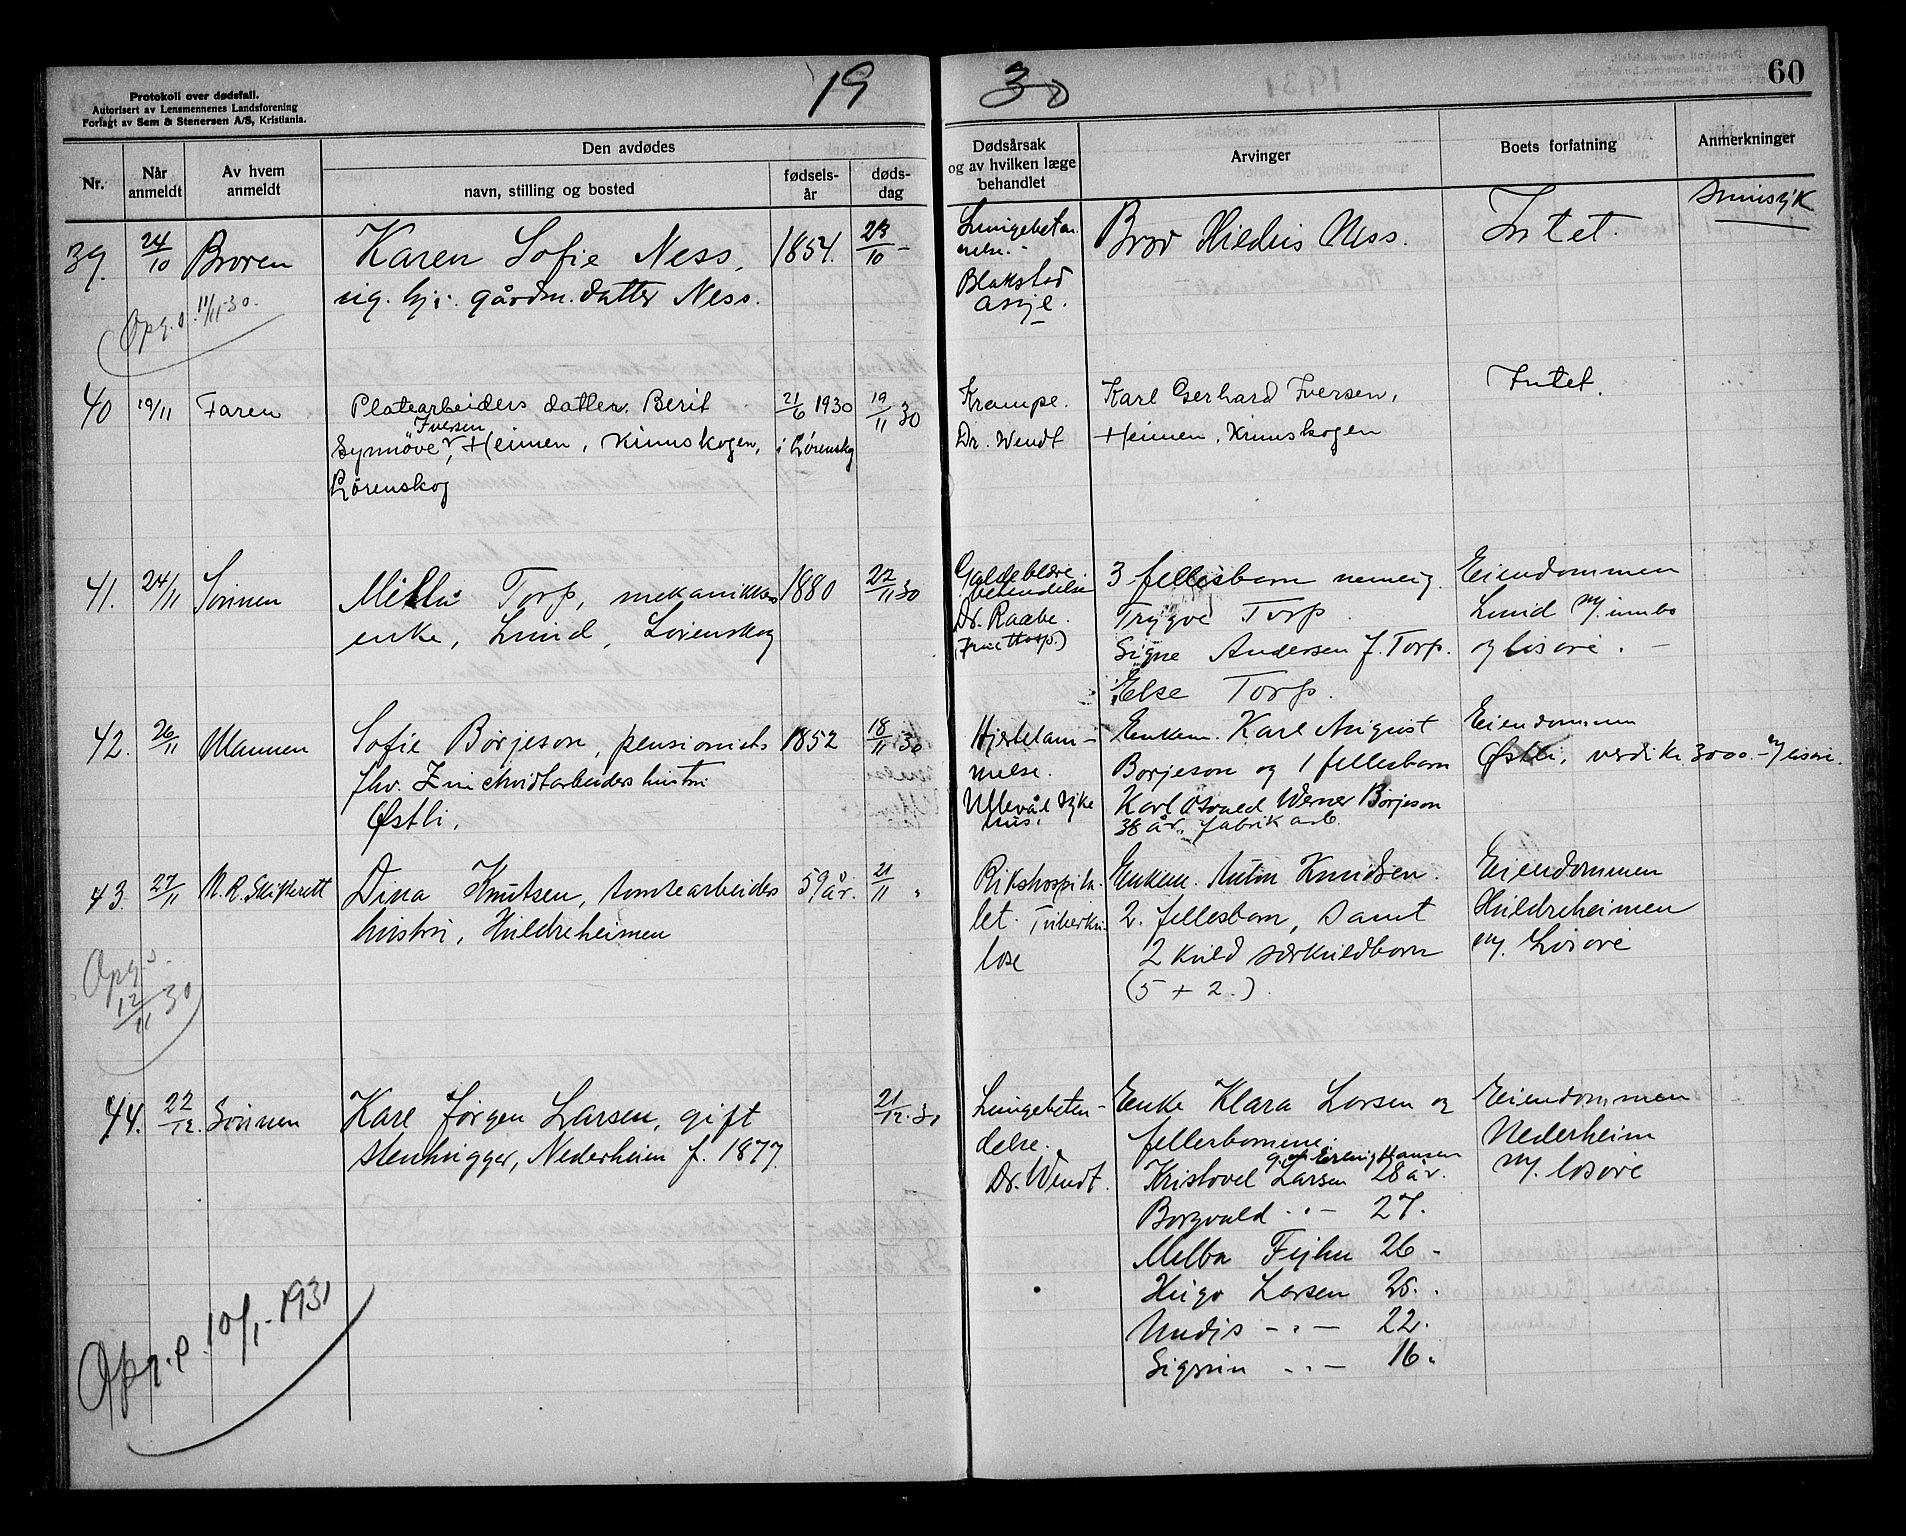 Protokoll over dødsfall.
Autorisert av Lensmennenes Landsforening
Forlagt av Sem & Stenersen A/S, Kristiania.
19 30
60
Nr.
Når anmeldt
Av hvem anmeldt
Den avdødes
navn, stilling og bosted
fødsels-år
døds-dag
Dødsårsak og av hvilken læge behandlet
Arvinger
Boets forfatning
Anmerkninger
39. 24/10 Broren
Karen Sofie Ness,
ug. hj. gårdm. datter Ness.
1854. 23/10 -
Lungebetennelse.
Blakstad
Asyl.
Bror Hildus Ness.
Intet.
Sinnsyk
Opg. 11/11-30.
40 19/11 Faren
Platearbeiders datter Berit
Synnøve Iversen, Heimen, Kinnskogen,
Lørenskog
21/6 1930
i Lørenskog
19/11 30
Krampe.
Dr. Wendt
Karl Gerhard Iversen,
Heimen, Kinnskogen
Intet.
41. 24/11 Sønnen
Milla Torp, mekanikkers
enke, Lund, Lørenskog
1880 22/11 30
Galdeblære
betendelse
Dr. Raabe.
3 fellesbarn nemlig.
Trygve Torp
Signe Andersen f. Torp.
Else Torp.
Eiendommen
Lund m/ innbo
og løsøre. -
42. 26/11 Mannen
Sofie Børjeson, pensionists
fhv. Zinkhvidtarbeiders hustru
Østli,
1852 18/11 30
Hjertelam-
melse.
Ullevål syke
hus.
Enkem. Karl August
Børjeson og 1 fellesbarn
Karl Osvald Werner Børjeson
38 år. fabrikarb.
Eiendommen
Østli, verdi kr 3000 - m/ løsøre.
43. 27/11 N. R. Skifterett
Dina Knutsen, tomtearbeiders
hustru, Huldreheimen
59 år. 21/11 "
Rikshospita-
let. Tuberku-
lose
Enkem. Anton Knudsen.
2. fellesbarn, samt
2 kuld særkuldbarn
(5 + 2.)
Eiendommen
Huldreheimen
m/. Løsøre
Opg.
12/11 30
44. 22/12. Sønnen
Karl Jørgen Larsen, gift
stenhugger, Nederheim f. 1877.
21/12. 30
Lungebeten-
delse.
Dr. Wendt.
Enke Klara Larsen og
fellesbarnene:
g. m. Erling Hansen
Kristovel Larsen 28 år.
Borgvald -"- 27.
Melba Fijhn 26 -
Hugo Larsen 25.
Undis -"- 22.
Sigrun -"- 16.
Eiendommen
Nederheim
m/. løsøre
Opg. 10/1-1931